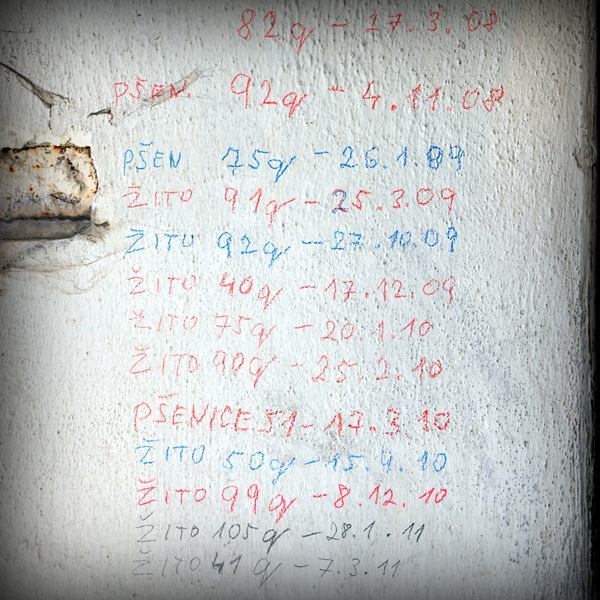 82q - 17.3.08
PŠEN. 92q - 4.11.08
PŠEN 75q - 26.1.09
ŽITO 91q - 25.3.09
ŽITO 92q - 27.10.09
ŽITO 40q - 17.12.09
ŽITO 75q - 20.1.10
ŽITO 90q - 25.2.10
PŠENICE 51 - 17.3.10
ŽITO 50q - 15.4.10
ŽITO 99q - 8.12.10
ŽITO 105q - 28.1.11
ŽITO 41q - 7.3.11